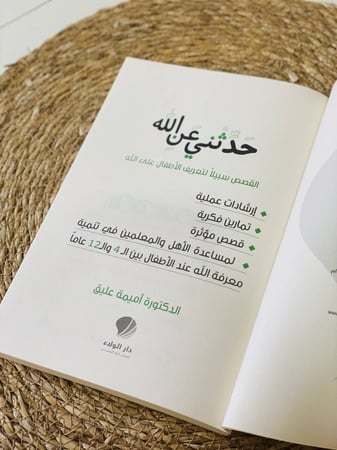 حَدِّثني عَن الله
القصص سبيلاً لتعريف الأطفال على الله
إرشادات عملية
تمارين فكرية
قصص مؤثرة
لمساعدة الأهل والمعلمين في تنمية
معرفة الله عند الأطفال بين الـ 4 والـ 12 عاماً
الدكتورة أميمة عليق
دار الولاء